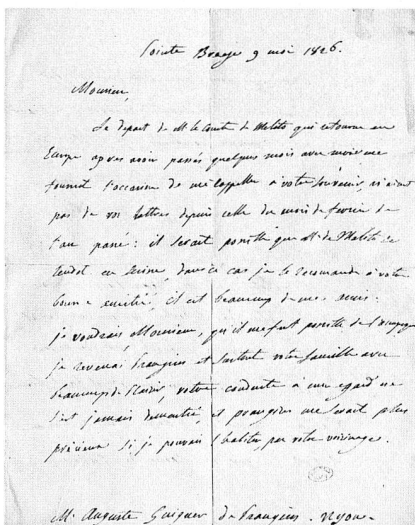 Pointe Breeze 9 mai 1826.
Monsieur,
Le depart de Mr le Comte de Melito qui retourne en
Europe apres avoir passés quelques mois avec moi me
fournit l'occasion de me rappeller à votre souvenir, n'aiant
pas de vos lettres depuis celle du mois de fevrier de
l'an passé: il serait possible que Mr de Melito se
rendit en Suisse, dans ce cas je le recomande à votre
bonne amitié, il est beaucoup de mes amis.
je voudrais Monsieur, qu'il me fut possible de l'accompagner
je reverrais Prangins et surtout votre famille avec
beaucoup de plaisir, votre conduite à mon egard ne
s'est jamais dementie, et prangins me serait plus
précieux si je pouvais l'habiter par votre voisinage.
Mr. Auguste Guiguer de Prangins. Nyon